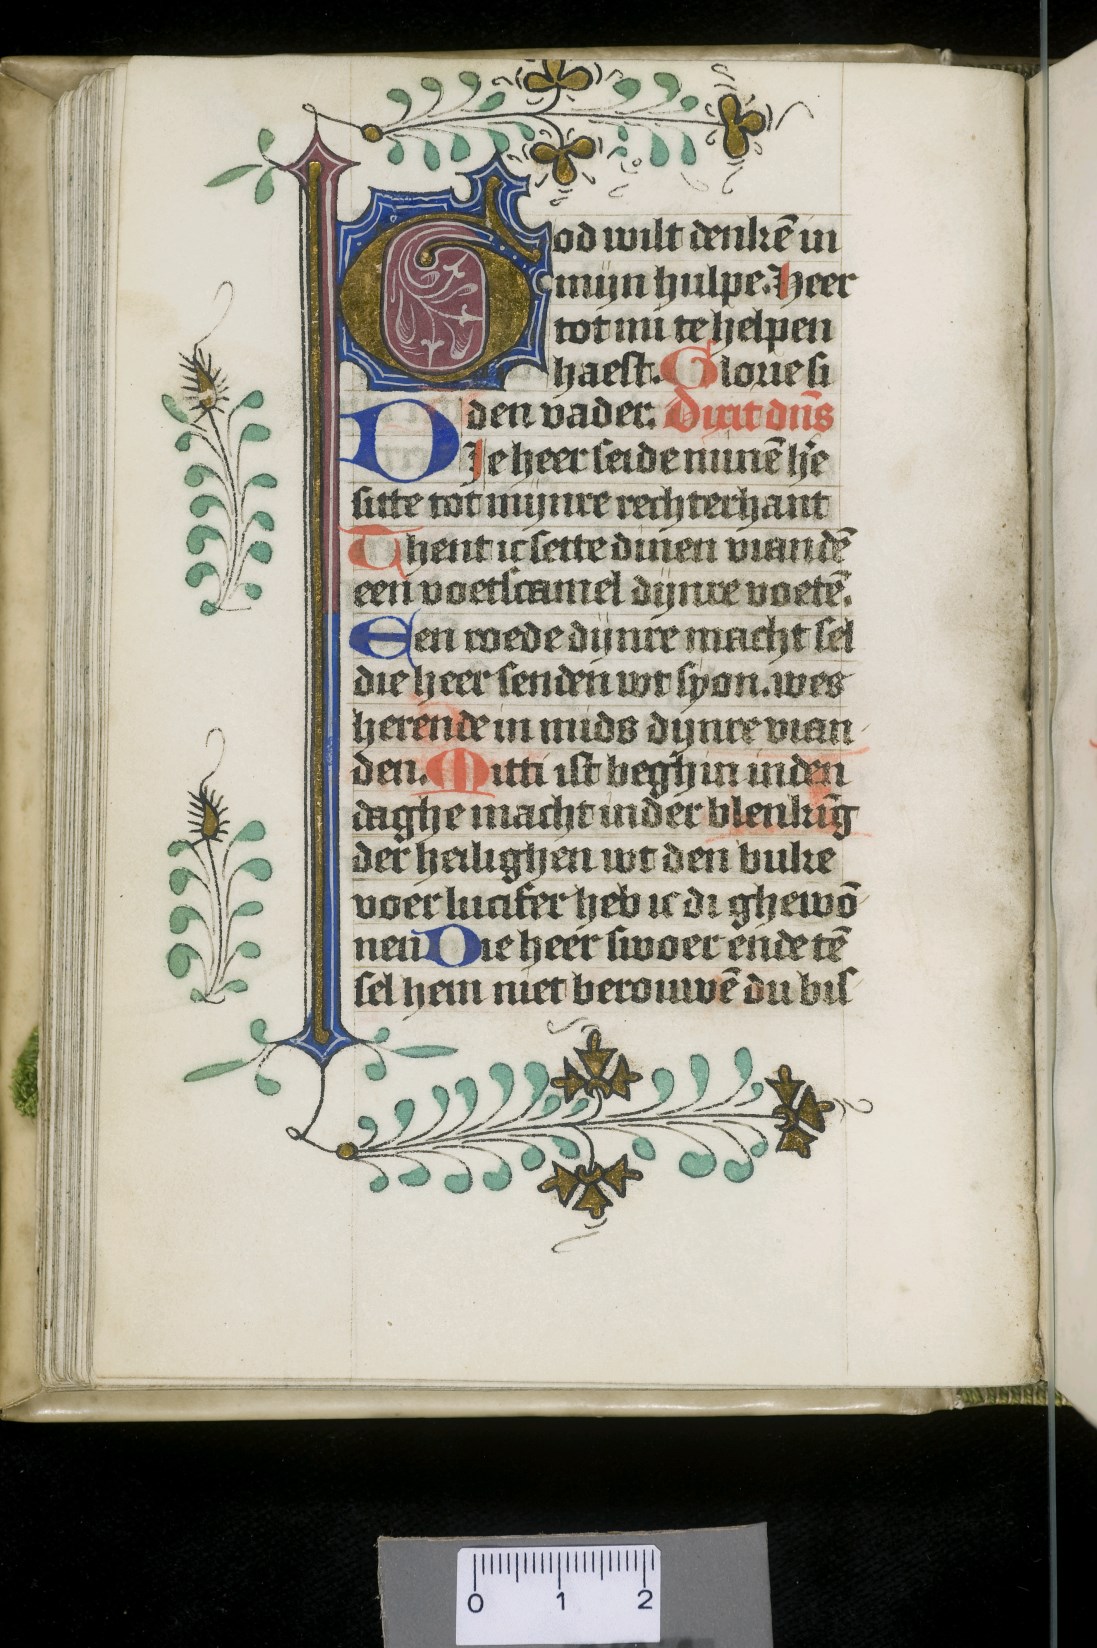 God wilt denkē in
mijn hulpe. Heer
tot mi te helpen
haest. Glorie si
den vader. Dixit dn̄s
Die heer seide minē he͂
sitte tot mijnre rechterhant
Thent ic sette dinen viandē
een voetscamel dijnre voetē.
Een roede dijnre macht sel
die heer senden wt syon. wes
herende in mids dijnre vian
den. Mitti ist beghin in den
daghe macht in der blenkīg
der heilighen wt den buke
voer lucifer heb ic di ghewō
nen Die heer swoer ende tē
sel hem niet berouwē du bis
0 1 2